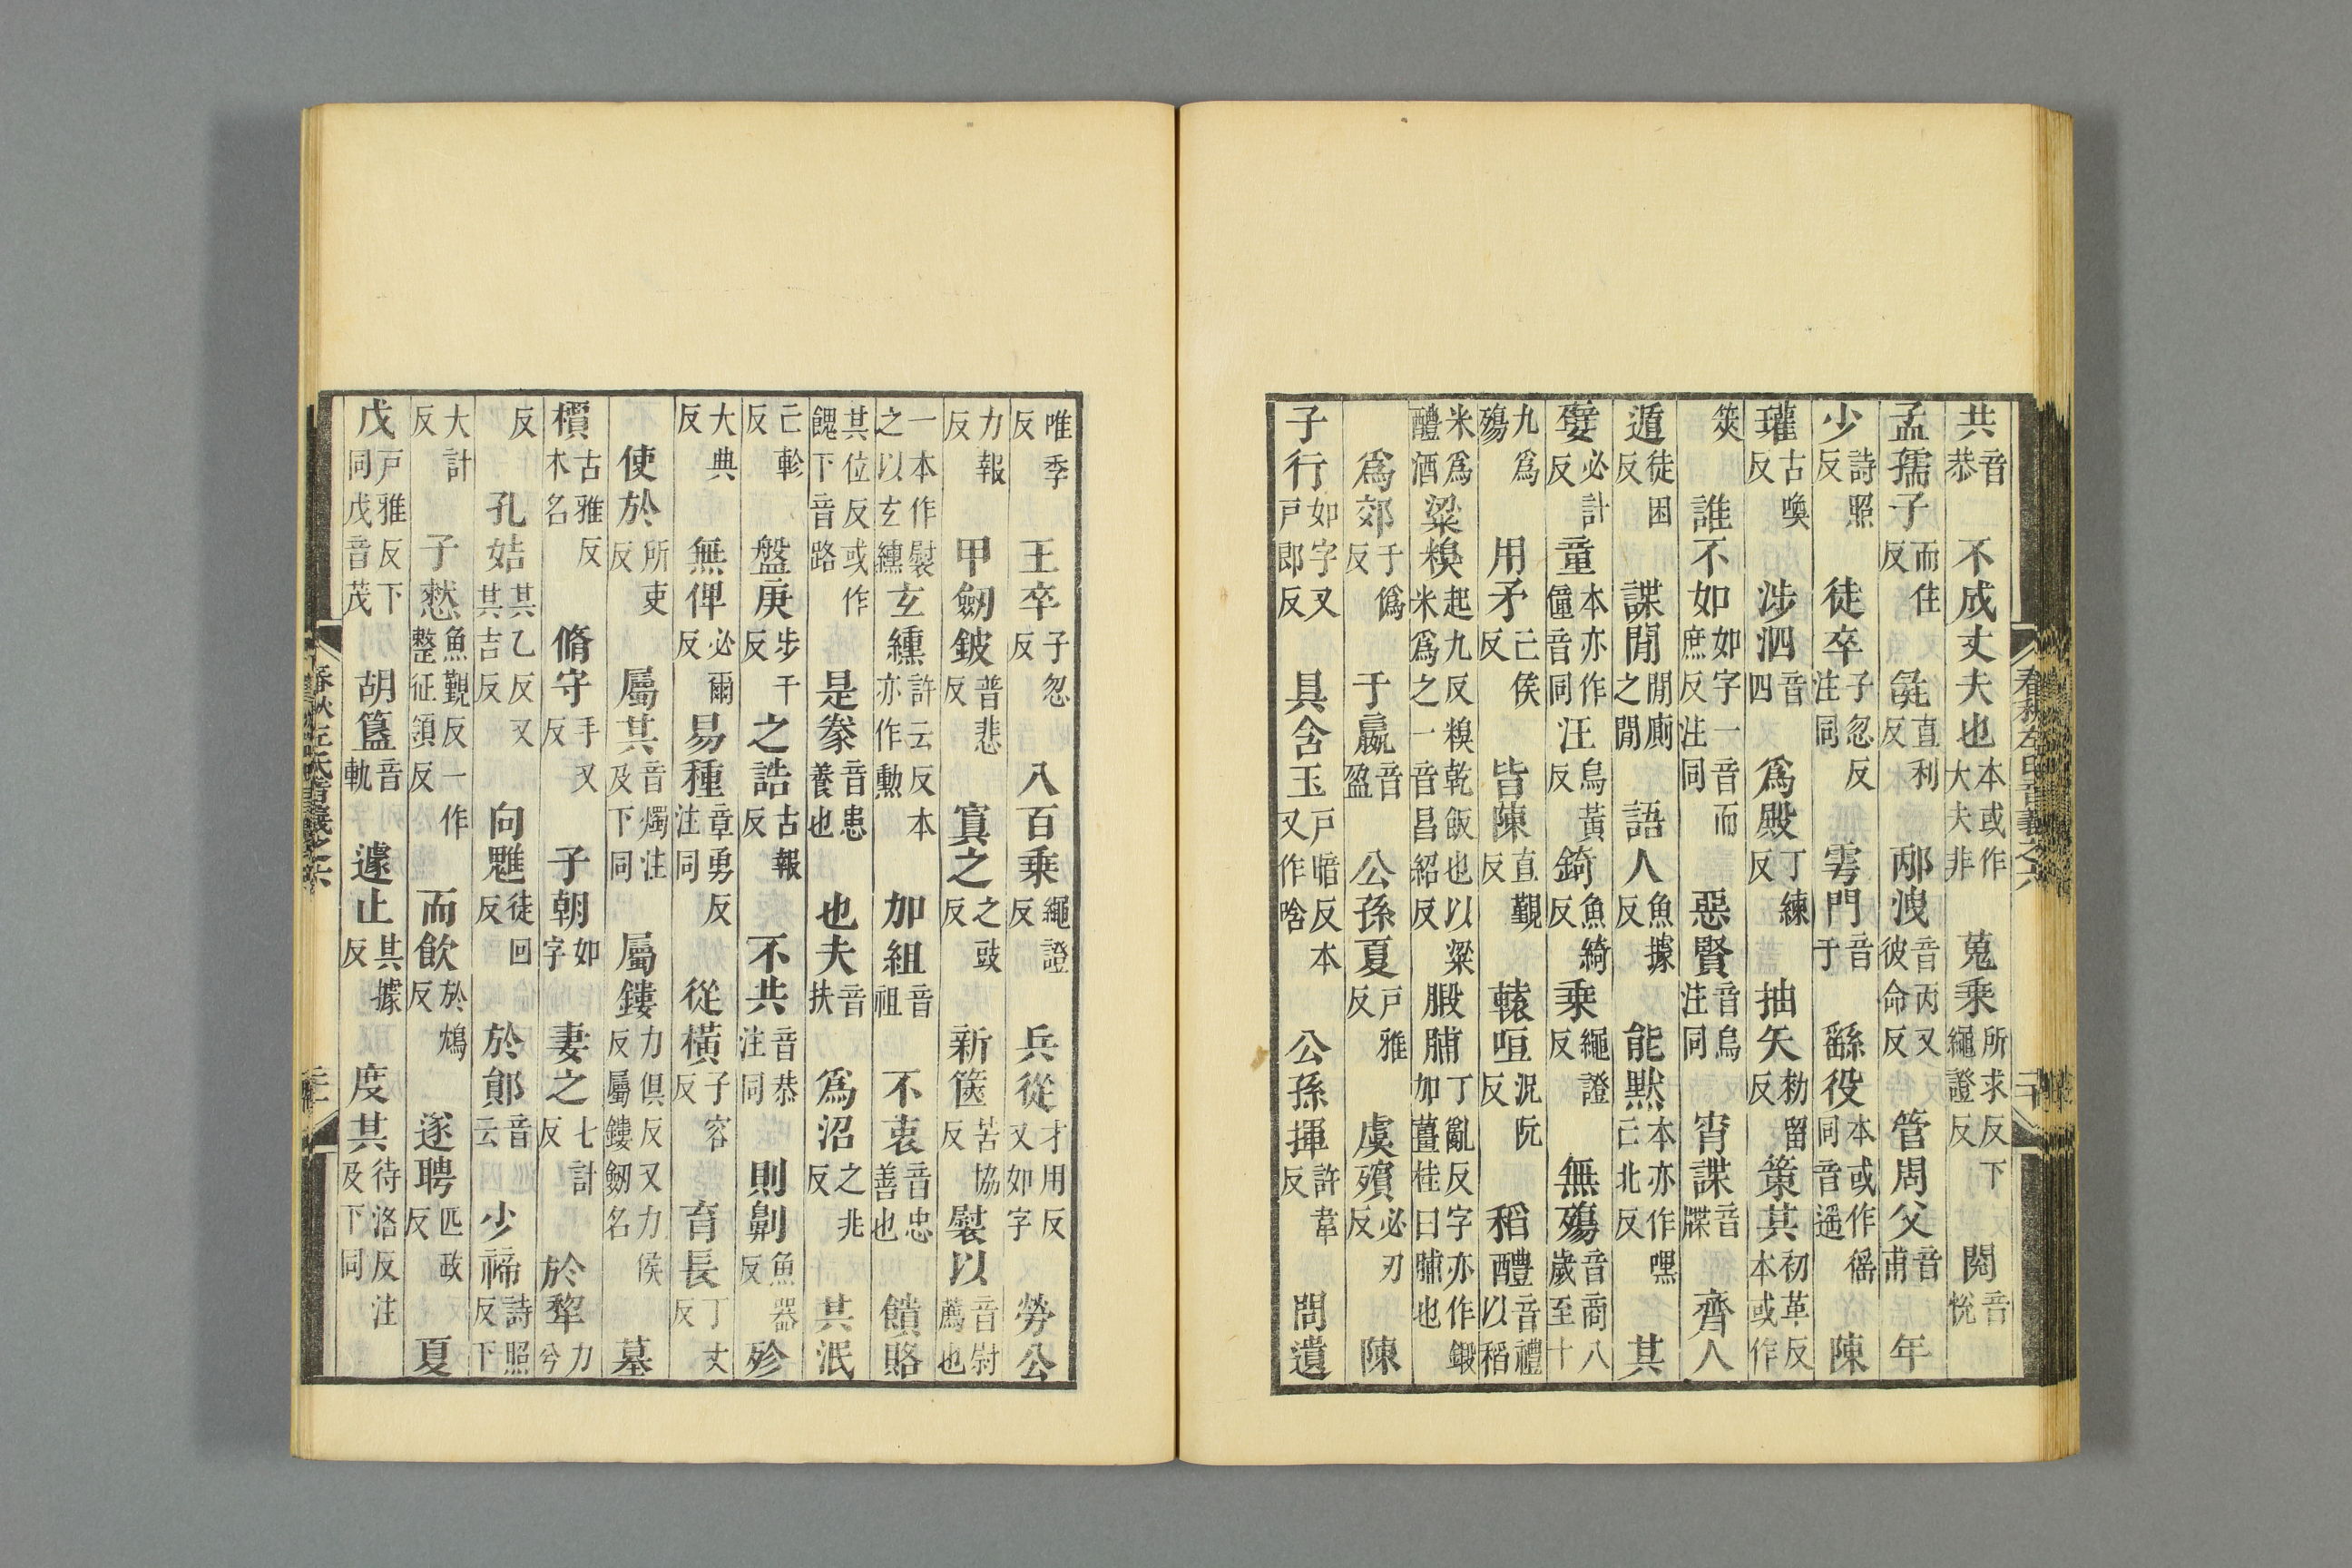 春秋左氏音義之六
共音恭不成丈夫也本或作大夫非蒐乘所求反下繩證反閱音悅
孟孺子而住反彘直利反邴洩音丙又彼命反管周父音甫年
少詩照反徒卒子忽反注同雩門音于繇役本或作傜同音遥陳
瓘古喚反涉泗音四爲殿丁練反抽矢勑留反策其初革反本或作
筴誰不如如字一音而庶反注同惡賢音烏注同宵諜音牒齊人
遁徒困反諜閒閒廁之閒語人魚據反能默本亦作嘿亡北反其
嬖必計反童本亦作僮音同汪烏黃反錡魚綺反乘繩證反無殤音商八歲至十
九爲殤用矛亡侯反皆陳直覲反轅咺況阮反稻醴音禮以稻
米爲醴酒粱糗起九反糗乾飯也以粱米爲之一音昌紹反腶脯丁亂反字亦作鍛加薑桂曰脯也
爲郊于僞反于嬴音盈公孫夏戶雅反虞殯必刃反陳
子行如字又戶郎反具含玉戶暗反本又作唅公孫揮許韋反問遺
唯季反王卒子忽反八百乘繩證反兵從才用反又如字勞公
力報反甲劒鈹普悲反寘之之豉反新篋苦協反褽以音尉薦也
一本作褽之以玄纁玄纁許云反本亦作勳加組音祖不衷音忠善也饋賂
其位反或作餽下音路是豢音患養也也夫音扶爲沼之兆反其泯
亡軫反盤庚步干反之誥古報反不共音恭注同則劓魚器反殄
大典反無俾必爾反易種章勇反注同從橫子容反育長丁丈反
使於所吏反屬其音燭注及下同屬鏤力俱反又力侯反屬鏤劒名墓
檟古雅反木名脩守手又反子朝如字妻之七計反於犂力兮
反孔姞其乙反又其吉反向魋徒回反於鄖音云少禘詩照反下
大計反子憖魚覲反一作整征領反而飲於鴆反遂聘匹政反夏
戊戶雅反下同戊音茂胡簋音軌遽止其據反度其待洛反注及下同
春秋左氏音義之六